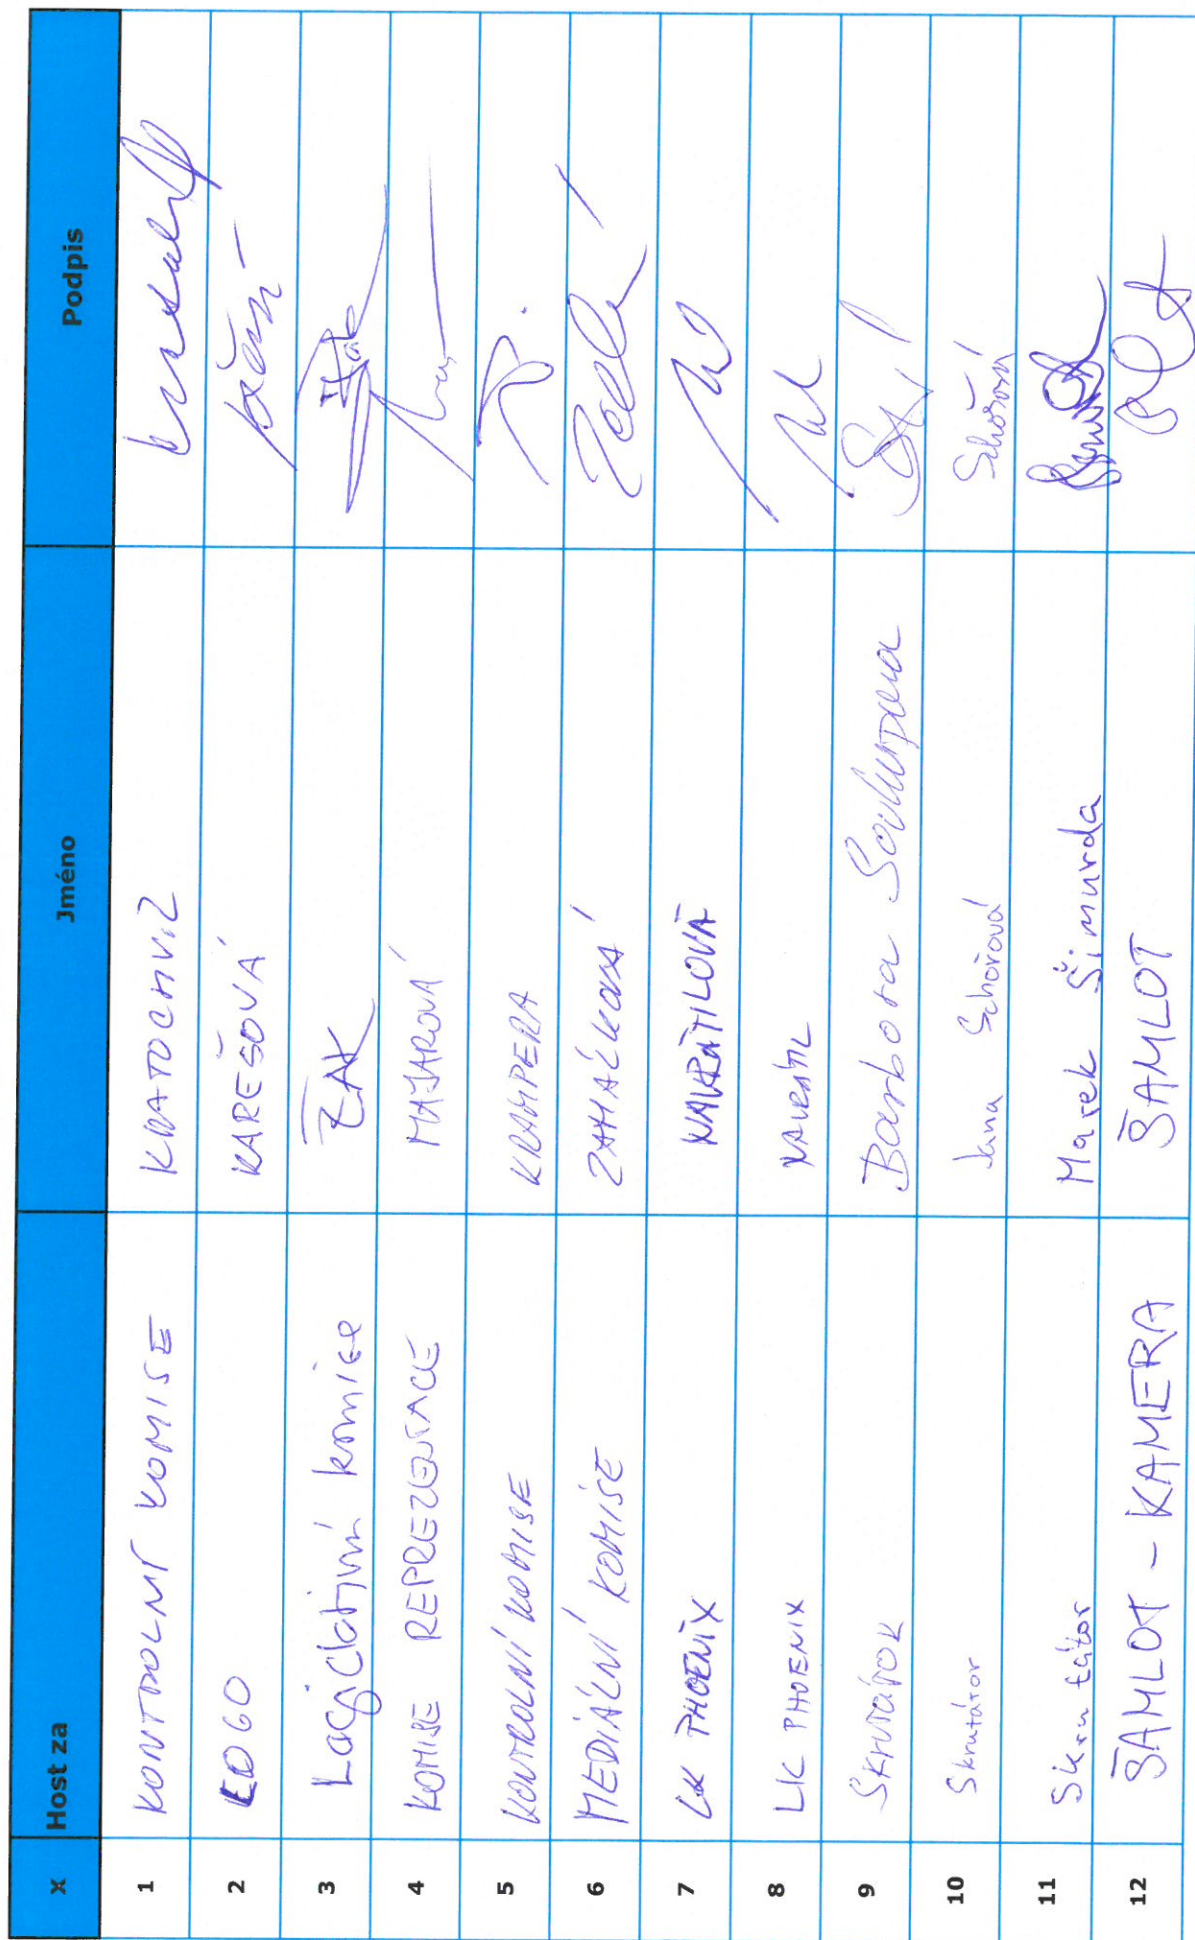 X Host za Jméno Podpis
1 KONTROLNÍ KOMISE KRATOCHVIL
2 KAREŠOVÁ
3 Legislativní komise ŽÁK
4 KOMISE REPREZENTACE MAJAROVÁ
5 KONTROLNÍ KOMISE KRAMPERA
6 MEDIÁLNÍ KOMISE
7 LK PHOENIX NAVRÁTILOVÁ
8 LK PHOENIX NAVRÁTIL
9 SKRUTÁTOR Barbora Soukupova
10 Skrutátor Jana Schořová Schořová
11 Skrutátor Marek Šimurda
12 ŠAMLOT - KAMERA ŠAMLOT